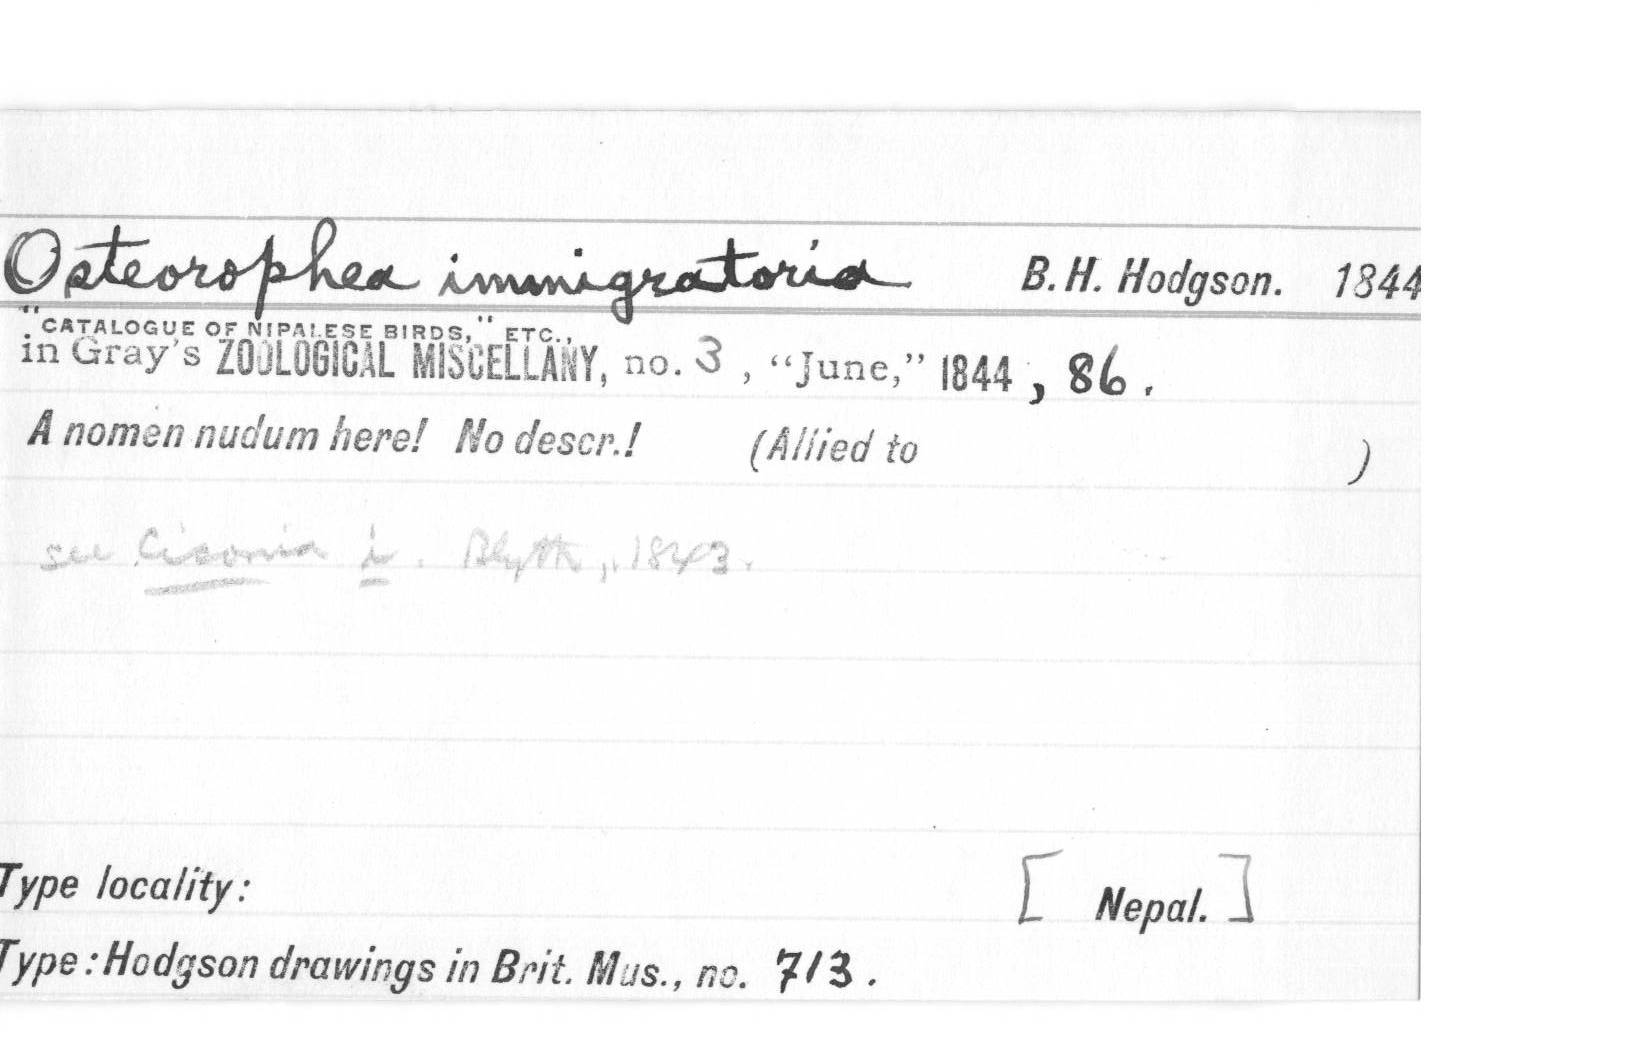 Osteorophea immigratoria B. H. Hodgson. 1844
"CATALOGUE OF NIPALESE BIRDS," ETC.,
in Gray's ZOOLOGICAL MISCELLANY, no. 3, “June,” 1844, 86.
A nomen nudum here! No descr.! (Allied to )
see Ciconia i. Blyth, 1843.
Type locality: [Nepal.]
Type: Hodgson drawings in Brit. Mus., no. 713.